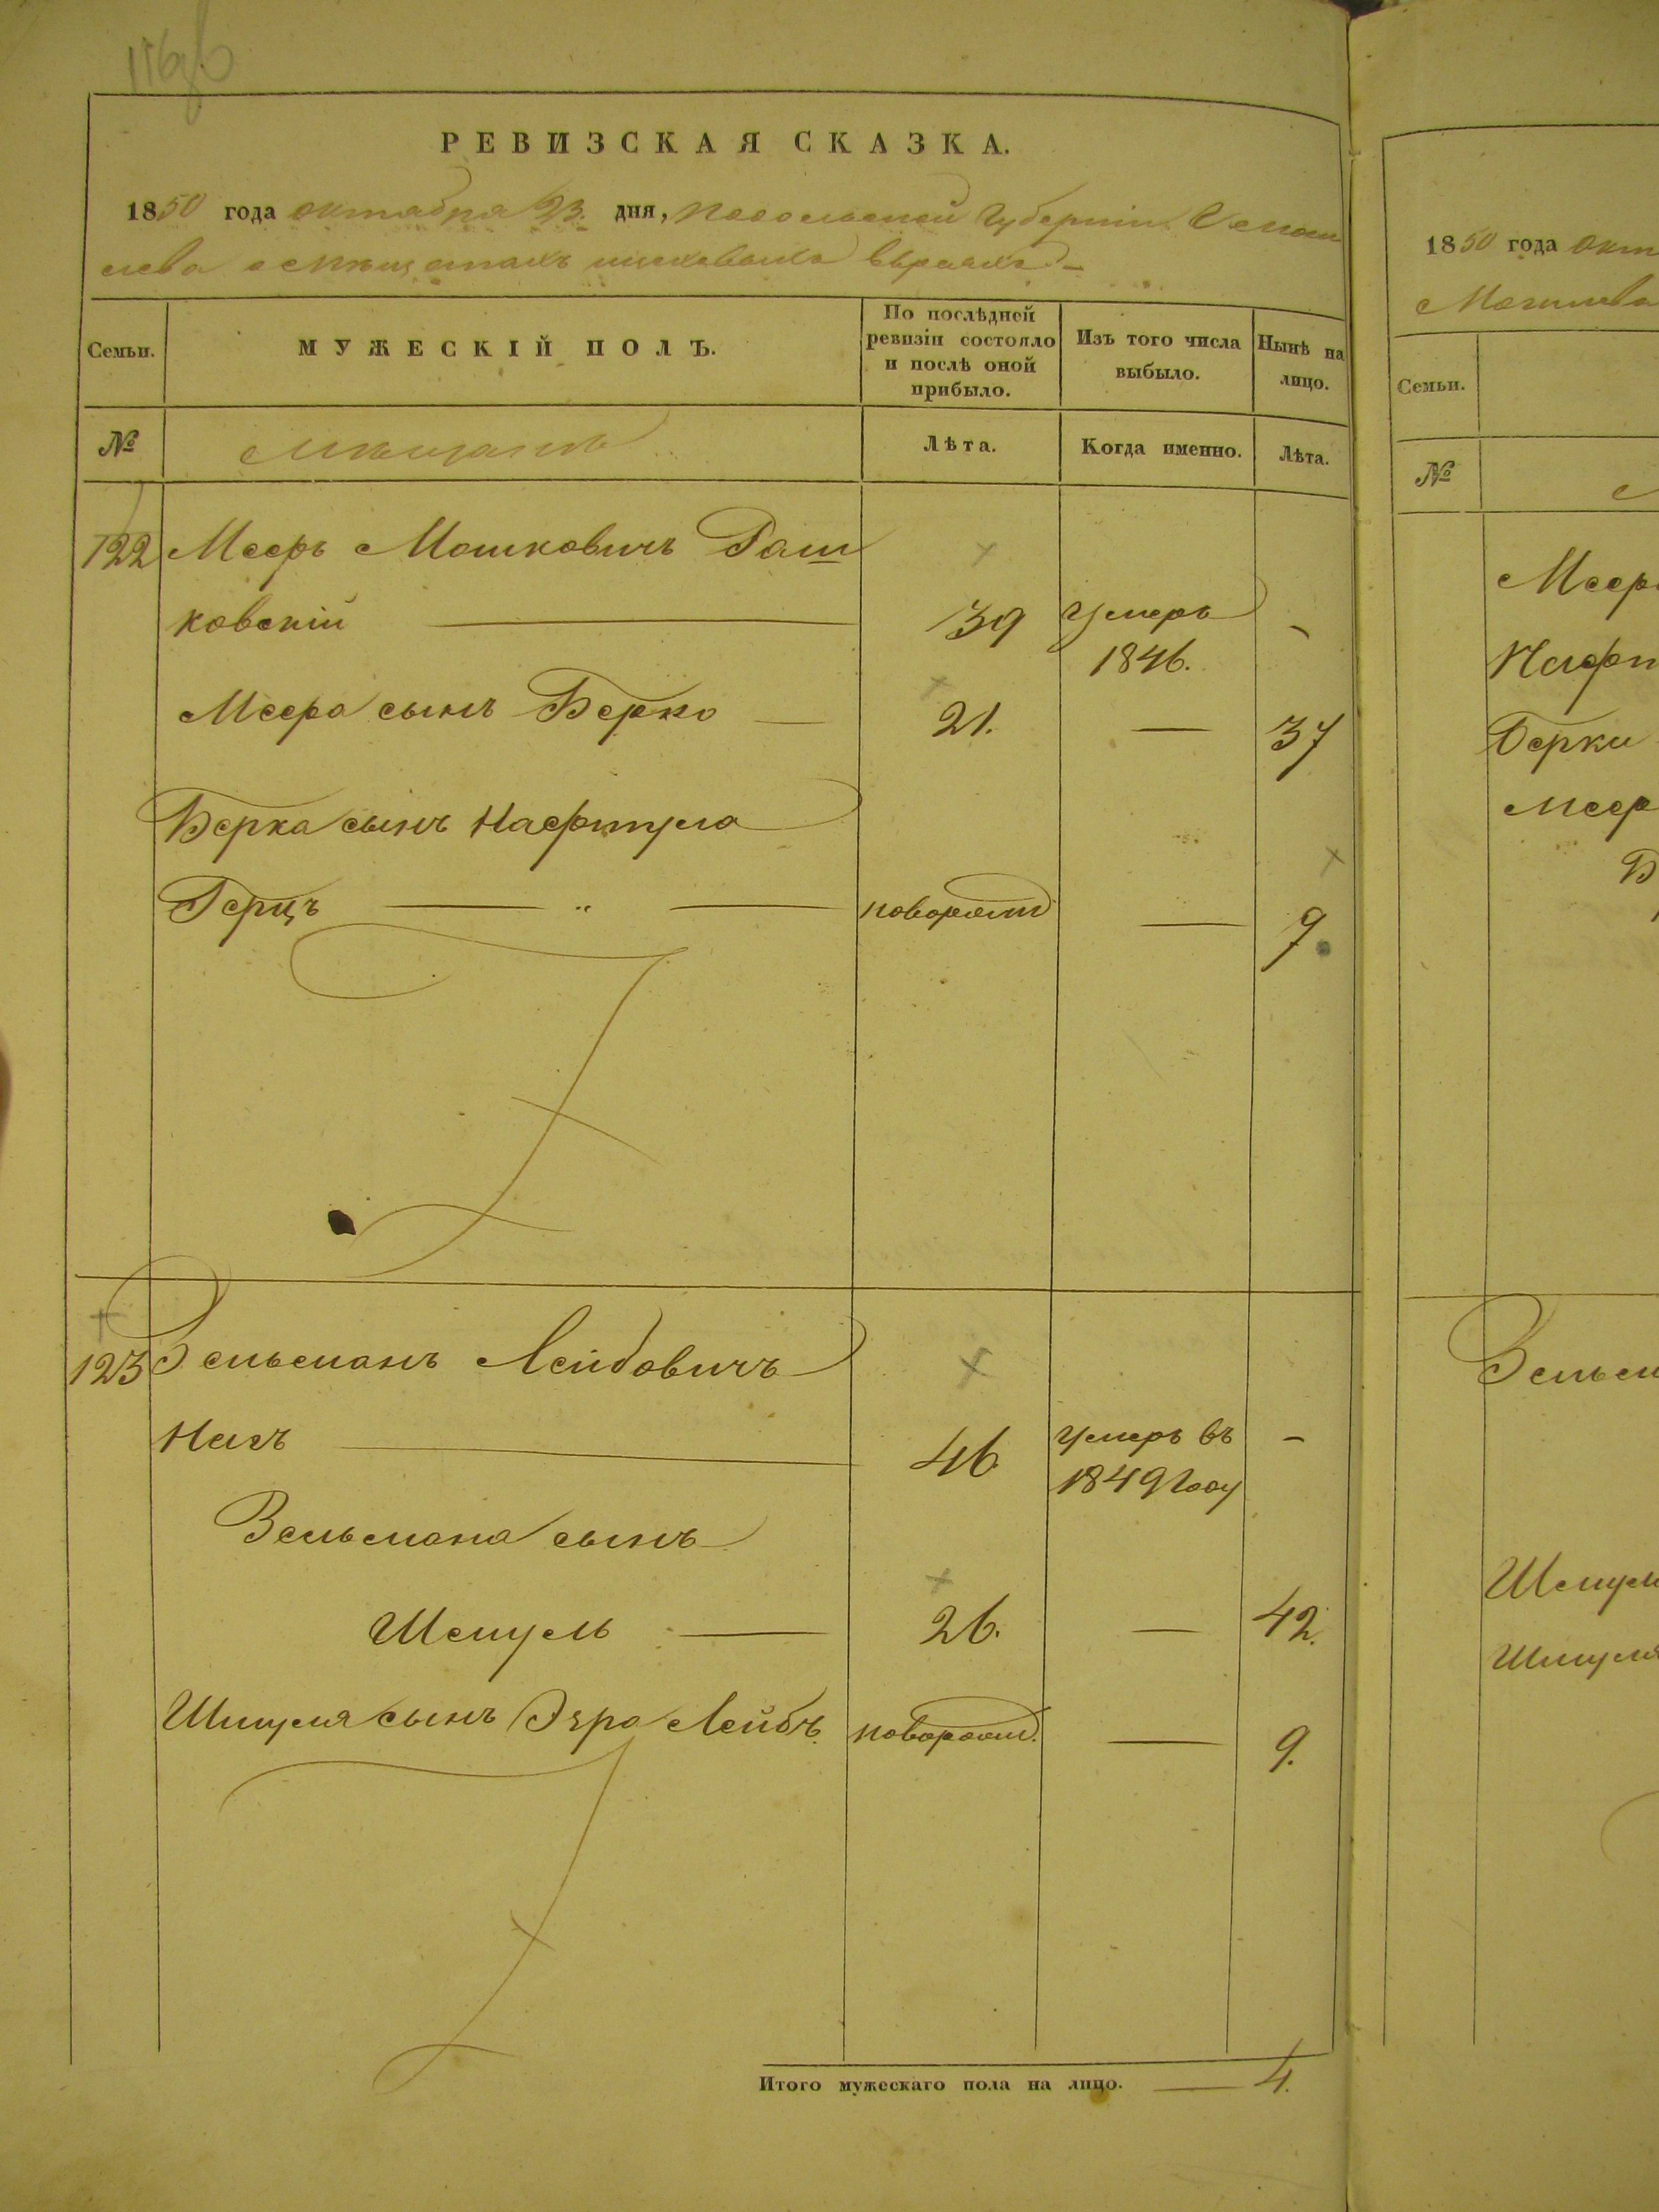 РЕВИЗСКАЯ СКАЗКА.
1850 года октября 23. дня, Подольской Губерніи
о мѣщанахъ евреяхъ
Семьи.
МУЖЕСКІЙ ПОЛЪ.
По послѣдней ревизіи состояло и послѣ оной прибыло.
Изъ того числа выбыло.
Нынѣ на лицо.
№
Мѣщане
Лѣта.
Когда именно.
Лѣта.
122 Меер Мошковичъ Раш
ковскій 39 умеръ -
1846.
Меера сынъ Берко 21. — 37
Берка сынъ Нафтула
Герцъ новорожд — 9.
123 Зельманъ Лейбовичъ
46 умеръ въ -
1849 году
Зельмана сынъ
Шмуль 26. — 42.
Шмуля сынъ Лейбъ новорожд. — 9.
Итого мужескаго пола на лицо. — 4.
1850 года окт
Могилева
Семьи.
№
Меер
Нафт
Берки
Меер
Б
Зельм
Шмуль
Шмуля